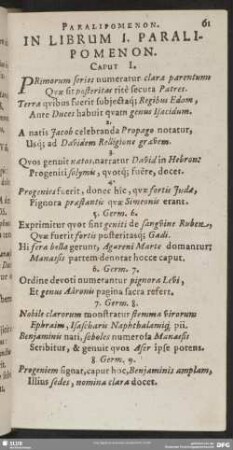 PARALIPOMENON. 61
IN LIBRUM I. PARALI-
POMENON.
CAPUT I.
PRimorum series numeratur clara parentum
Quæ sit posteritas ritè secuta Patres.
Terra quibus fuerit subjectaq; Regibus Edom,
Ante Duces habuit quam genus Isacidum.
2.
A natis Jacob celebranda Propago notatur,
Usq; ad Davidem Relligione gravem.
3.
Quos genuit natos, narratur David in Hebron;
Progeniti solymis, quotq; fuêre, docet.
4.
Progenies fuerit, donec hîc, quæ fortis Juda,
Pignora præstantis quæ Simeonis erant.
5. Germ. 6.
Exprimitur quot sint geniti de sangvine Ruben,
Quæ fuerit fortis posteritasq; Gadi.
Hi fera bella gerunt, Agareni Marte domantur;
Manassis partem denotat hocce caput.
6. Germ. 7.
Ordine devoti numerantur pignora Levi,
Et genus Aäronis pagina sacra refert.
7. Germ. 8.
Nobile clarorum monstratur stemma virorum
Ephraim, Isascharis Naphthalamiq; pii.
Benjaminis nati, soboles numerosa Manassis
Scribitur, & genuit quos Aser ipse potens.
8. Germ. 9.
Progeniem signat, caput hoc, Benjaminis amplam,
Illius sedes, nomina clara docet.
SLUB